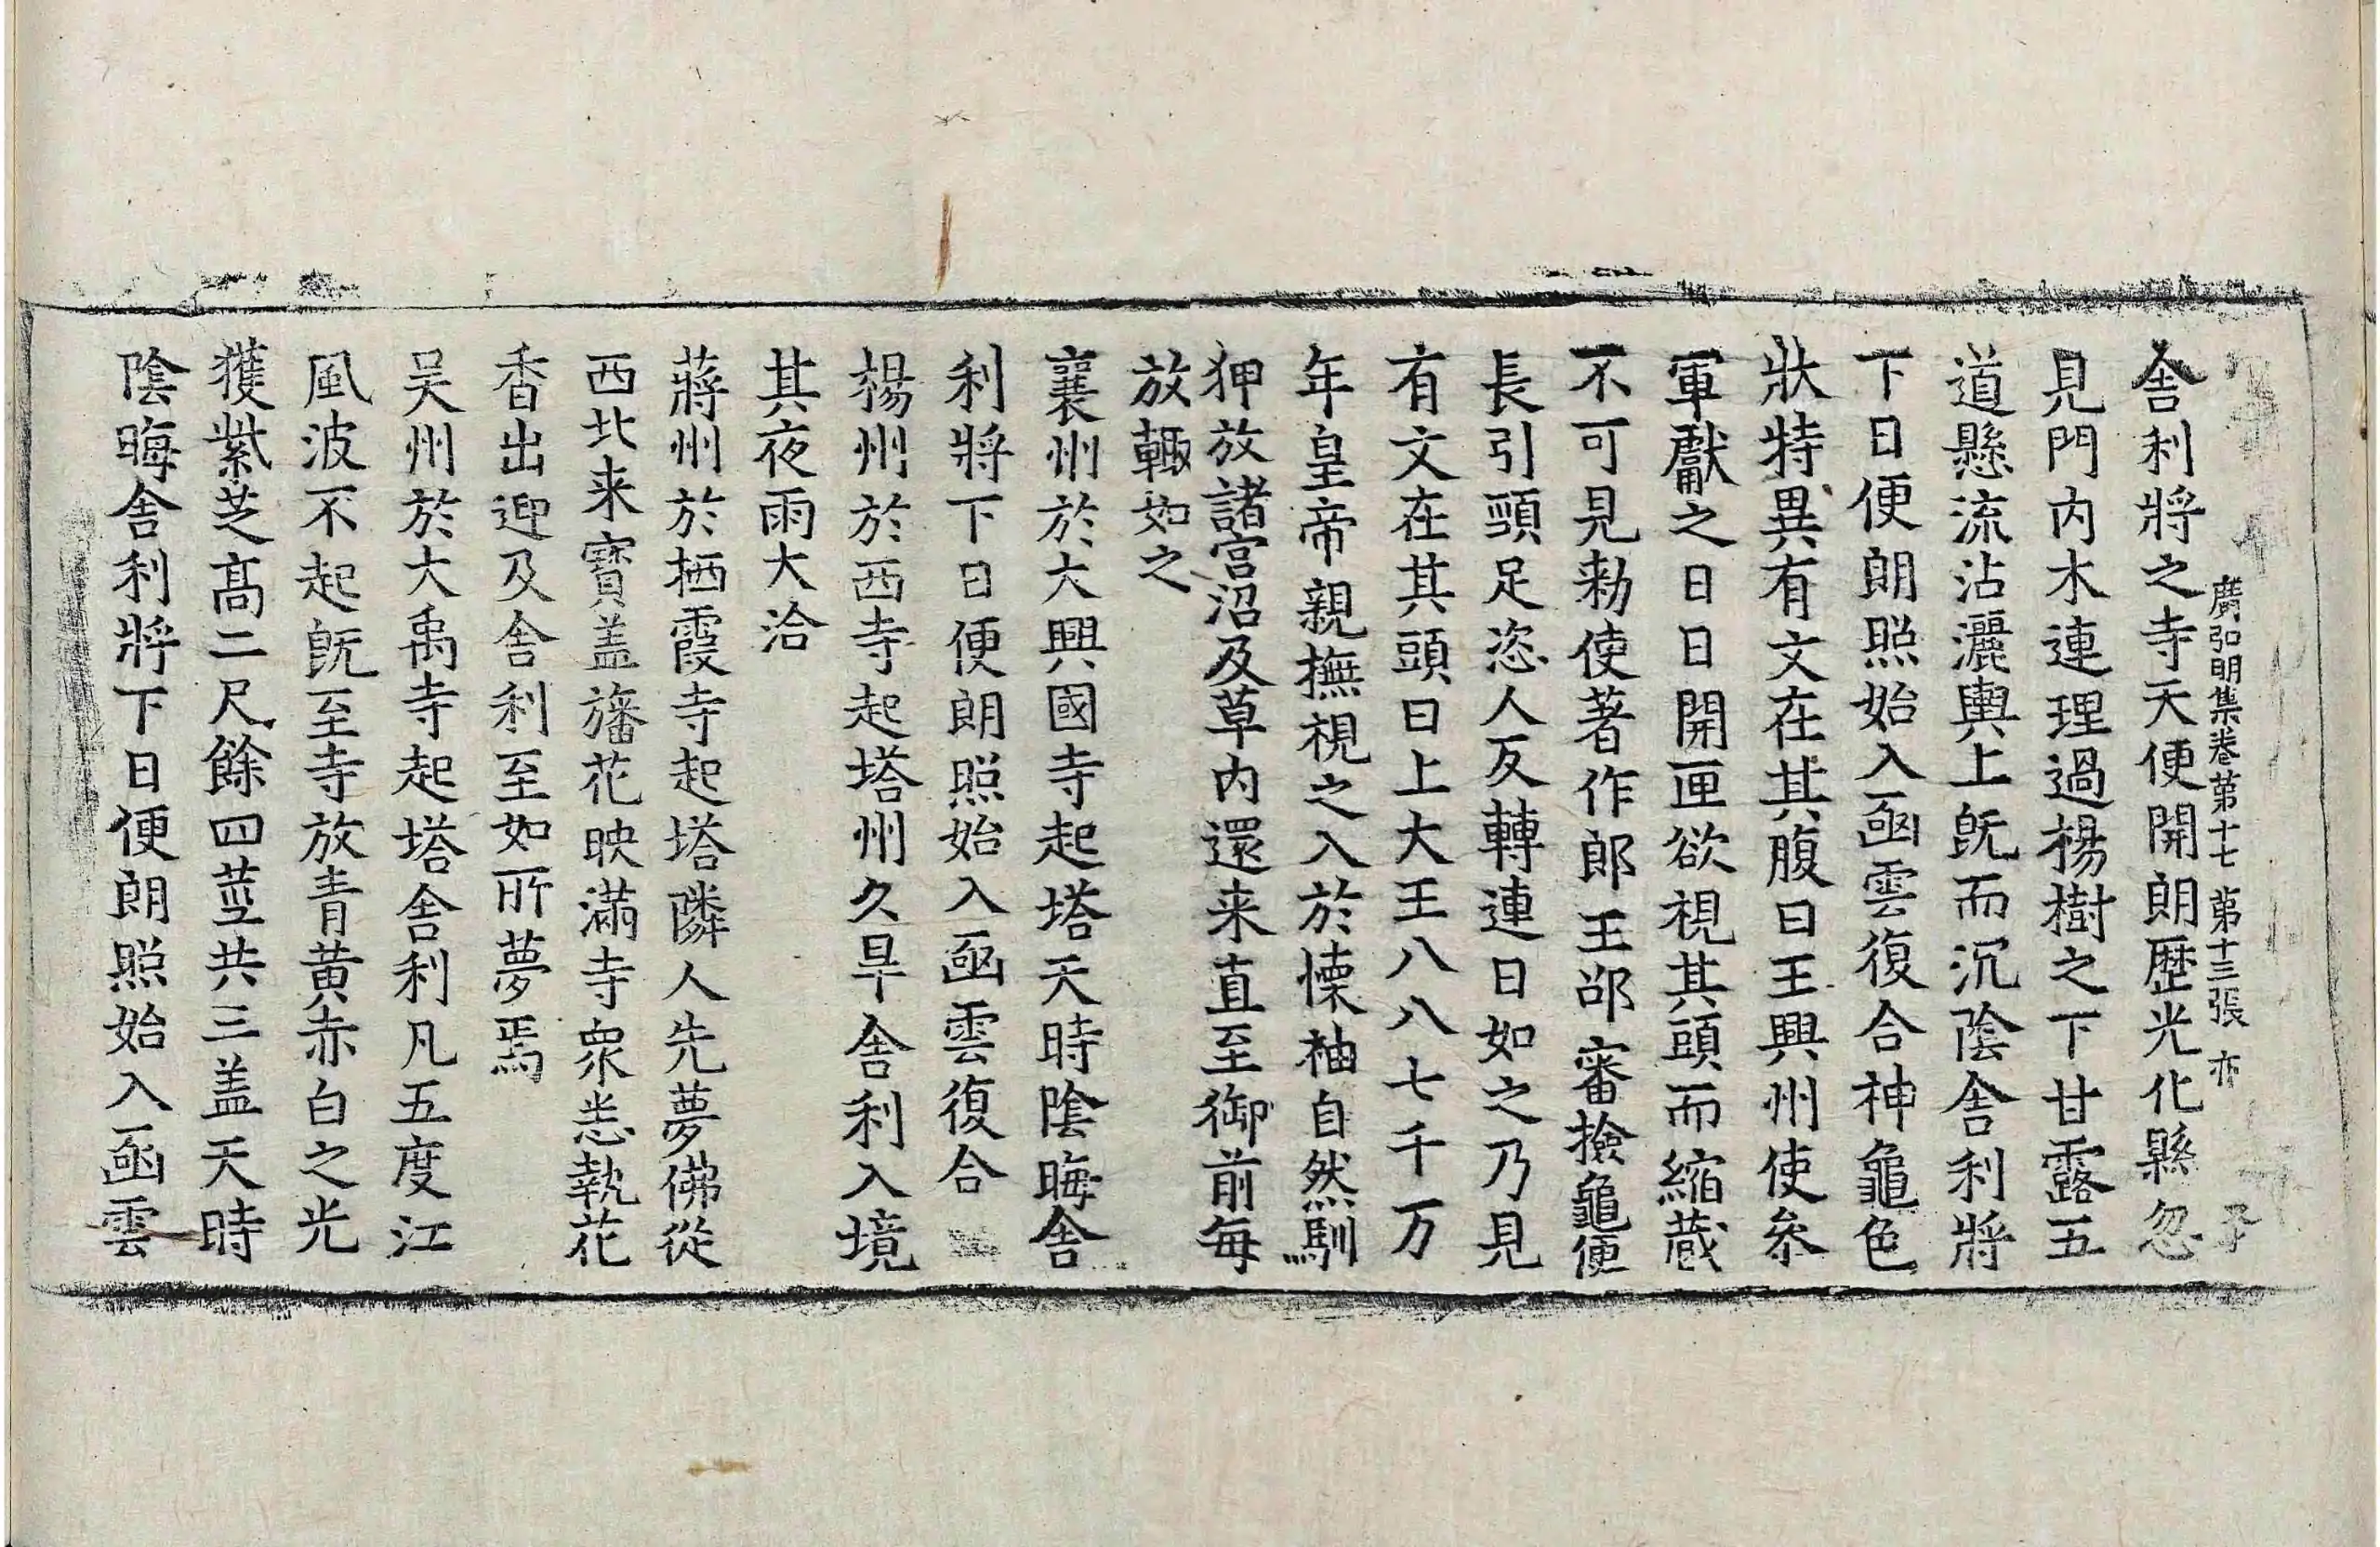 廣弘明集卷第十七 第十三張 亦
舍利將之寺天便開朗歷光化縣忽
見門内木連理過楊樹之下甘露五
道懸流沾灑輿上旣而沉陰舍利將
下日便朗照始入函雲復合神龜色
狀特異有文在其腹曰王興州使叅
軍獻之日日開匣欲視其頭而縮蔵
不可見勑使著作郎王邵審撿龜便
長引頸足恣人反轉連日如之乃見
有文在其頭曰上大王八八七千万
年皇帝親撫視之入於懐袖自然馴
狎放諸宮沼及草内還来直至御前每
放輙如之
襄州於大興國寺起塔天時陰晦舍
利將下日便朗照始入函雲復合
楊州於西寺起塔州久旱舍利入境
其夜雨大洽
蔣州於栖霞寺起塔隣人先夢佛從
西北来寳盖旛花映滿寺衆悉執花
香出迎及舍利至如所夢焉
吴州於大禹寺起塔舍利凡五度江
風波不起旣至寺放青黄赤白之光
獲紫芝髙二尺餘四莖共三盖天時
陰晦舍利將下日便朗照始入函雲